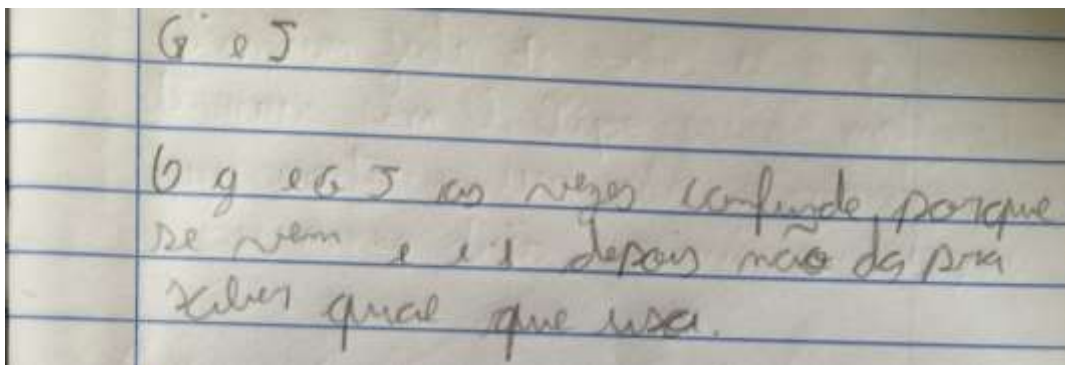 G e J
O g e o J as vezes confunde, porque
se vem e e i depois não da pra
saber qual que usa.